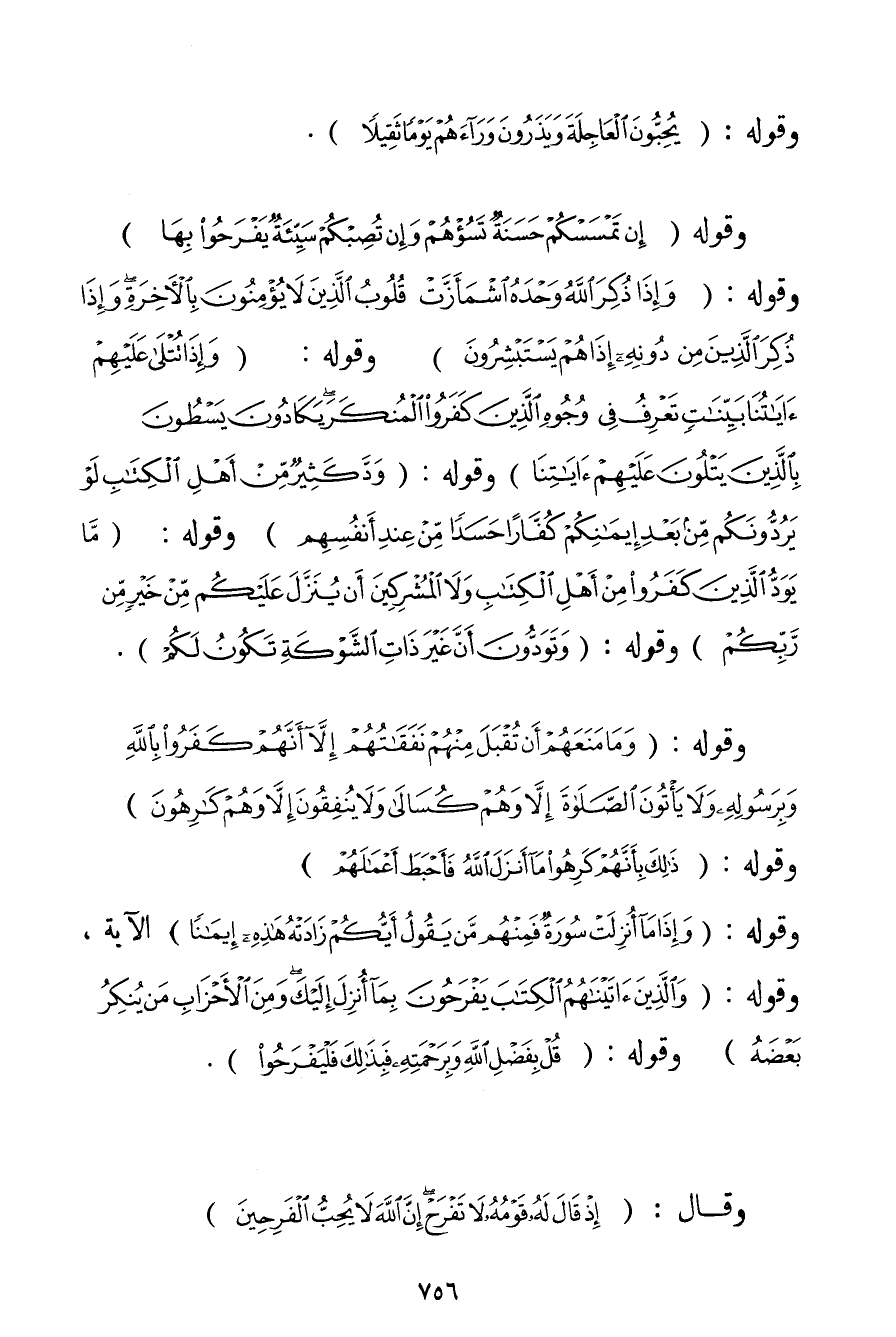 وقوله : ( يُحِبُّونَ ٱلْعَاجِلَةَ وَيَذَرُونَ وَرَآءَهُمْ يَوْمًا ثَقِيلًا ) .
وقوله ( إِن تَمْسَسْكُمْ حَسَنَةٌ تَسُؤْهُمْ وَإِن تُصِبْكُمْ سَيِّئَةٌ يَفْرَحُوا۟ بِهَا )
وقوله : ( وَإِذَا ذُكِرَ ٱللَّهُ وَحْدَهُ ٱشْمَأَزَّتْ قُلُوبُ ٱلَّذِينَ لَا يُؤْمِنُونَ بِٱلْأَخِرَةِ ۖ وَإِذَا
ذُكِرَ ٱلَّذِينَ مِن دُونِهِۦٓ إِذَا هُمْ يَسْتَبْشِرُونَ ) وقوله : ( وَإِذَا تُتْلَىٰ عَلَيْهِمْ
ءَايَٰتُنَا بَيِّنَٰتٍ تَعْرِفُ فِى وُجُوهِ ٱلَّذِينَ كَفَرُوا۟ ٱلْمُنكَرَ ۖ يَكَادُونَ يَسْطُونَ
بِٱلَّذِينَ يَتْلُونَ عَلَيْهِمْ ءَايَٰتِنَا ) وقوله : ( وَدَّ كَثِيرٌ مِّنْ أَهْلِ ٱلْكِتَٰبِ لَوْ
يَرُدُّونَكُم مِّنۢ بَعْدِ إِيمَٰنِكُمْ كُفَّارًا حَسَدًا مِّنْ عِندِ أَنفُسِهِم ) وقوله : ( مَّا
يَوَدُّ ٱلَّذِينَ كَفَرُوا۟ مِنْ أَهْلِ ٱلْكِتَٰبِ وَلَا ٱلْمُشْرِكِينَ أَن يُنَزَّلَ عَلَيْكُم مِّنْ خَيْرٍ مِّن
رَّبِّكُمْ ) وقوله : ( وَتَوَدُّونَ أَنَّ غَيْرَ ذَاتِ ٱلشَّوْكَةِ تَكُونُ لَكُمْ ) .
وقوله : ( وَمَا مَنَعَهُمْ أَن تُقْبَلَ مِنْهُمْ نَفَقَٰتُهُمْ إِلَّآ أَنَّهُمْ كَفَرُوا۟ بِٱللَّهِ
وَبِرَسُولِهِۦ وَلَا يَأْتُونَ ٱلصَّلَوٰةَ إِلَّا وَهُمْ كُسَالَىٰ وَلَا يُنفِقُونَ إِلَّا وَهُمْ كَٰرِهُونَ )
وقوله : ( ذَٰلِكَ بِأَنَّهُمْ كَرِهُوا۟ مَآ أَنزَلَ ٱللَّهُ فَأَحْبَطَ أَعْمَٰلَهُمْ )
وقوله : ( وَإِذَا مَآ أُنزِلَتْ سُورَةٌ فَمِنْهُم مَّن يَقُولُ أَيُّكُمْ زَادَتْهُ هَٰذِهِۦٓ إِيمَٰنًا ) الآية ،
وقوله : ( وَٱلَّذِينَ ءَاتَيْنَٰهُمُ ٱلْكِتَٰبَ يَفْرَحُونَ بِمَآ أُنزِلَ إِلَيْكَ ۖ وَمِنَ ٱلْأَحْزَابِ مَن يُنكِرُ
بَعْضَهُ ) وقوله : ( قُلْ بِفَضْلِ ٱللَّهِ وَبِرَحْمَتِهِۦ فَبِذَٰلِكَ فَلْيَفْرَحُوا۟ ) .
وقــال : ( إِذْ قَالَ لَهُۥ قَوْمُهُۥ لَا تَفْرَحْ ۖ إِنَّ ٱللَّهَ لَا يُحِبُّ ٱلْفَرِحِينَ )
٧٥٦